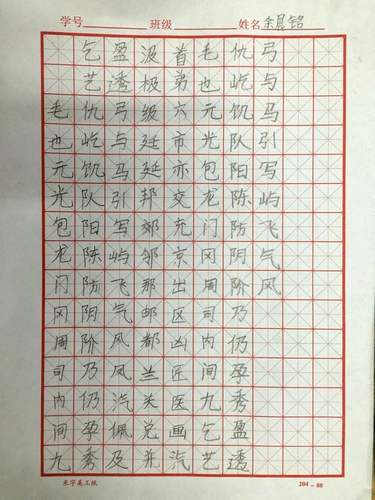 学号 班级 姓名 余晨铭
乞盈汲首毛仇弓
艺透极弟也屹与
毛仇弓级六元饥马
也屹与廷市光队引
元饥马延亦包阳写
光队引邦交龙陈屿
包阳写郊充门防飞
龙陈屿邻京冈阴气
门防飞那出周阶风
冈阴气邮区司乃
周阶风都凶内仍
司乃凤兰匠间孕
内仍汽关医九秀
间孕佩兑画乞盈
九秀及并汽艺透
米字美工纸 204-08